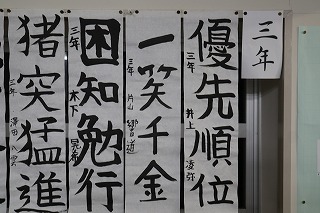 三年
優先順位
三年 井上 凌弥
一笑千金
三年 片山 響道
困知勉行
三年 木下 晃希
猪突猛進
三年 澤田 八雲